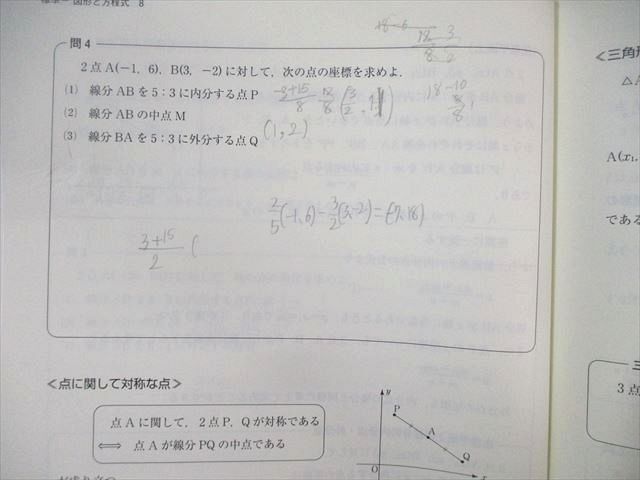 図形と方程式 8
問 4
2点 A(−1, 6), B(3, −2) に対して,次の点の座標を求めよ.
(1) 線分 AB を 5 : 3 に内分する点 P
(2) 線分 AB の中点 M
(3) 線分 BA を 5 : 3 に外分する点 Q
-3+15/8 12/8 (3/2, 1)
18-10/8
(1, 2)
(-1,6)-3/2(3,-2)=(-7,18)
3+15/2 (
<点に関して対称な点>
点 A に関して,2点 P, Q が対称である
⟺ 点 A が線分 PQ の中点である
y
P
A
Q
O
x
<三角形
△A
A(x₁,
である
三
3点